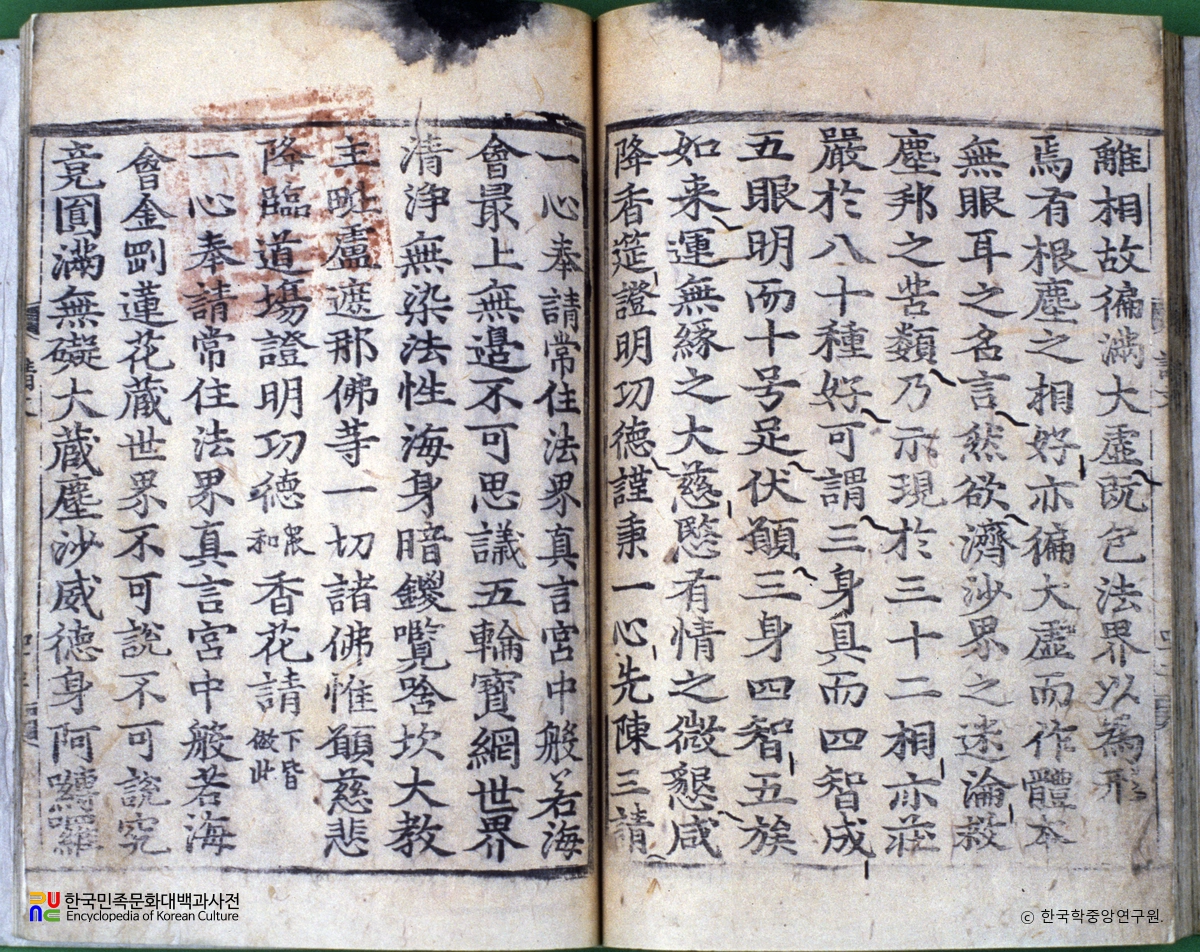 離相故徧滿大虛旣包法界以爲形
焉有根塵之相好亦徧大虛而作體本
無眼耳之名言然欲濟沙界之迷淪救
塵邦之苦類乃示現於三十二相亦莊
嚴於八十種好可謂三身具而四智成
五眼明而十号足伏願三身四智五族
如来運無緣之大慈愍有情之微懇咸
降香筵證明功德謹秉一心先陳三請
一心奉請常住法界真言宮中般若海
會最上無邊不可思議五輪寶網世界
清淨無染法性海身暗鑁㘕唅坎大教
主毗盧遮那佛䓁一切諸佛惟願慈悲
降臨道場證明功德 衆和 香花請 下皆倣此
一心奉請常住法界真言宮中般若海
會金剛蓮花藏世界不可說不可說究
竟圓滿無礙大藏塵沙威德身阿囉
請文
한국민족문화대백과사전
Encyclopedia of Korean Culture
© 한국학중앙연구원.